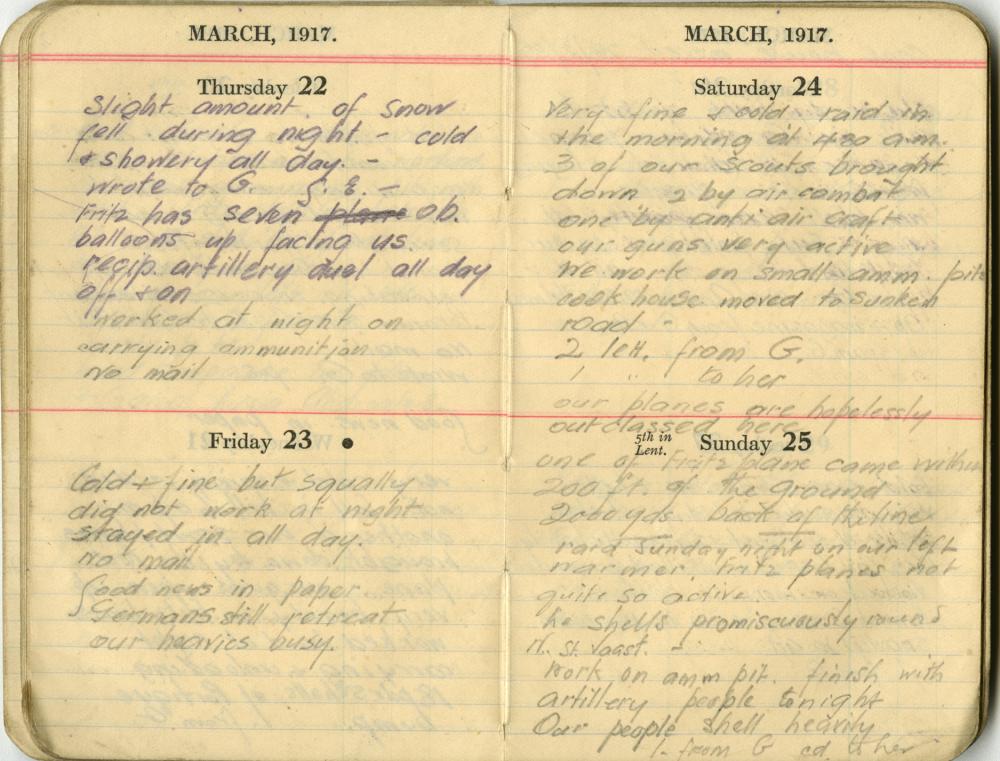 MARCH, 1917.
Thursday 22
Slight amount of snow
fell during night - cold
+ showery all day. -
wrote to G. S. E. -
Fritz has seven plane ob.
balloons up facing us
recip. artillery duel all day
off + on
worked at night on
carrying ammunition
No mail
Friday 23
Cold + fine but squally
did not work at night
stayed in all day.
no mail
Good news in paper.
Germans still retreat
our heavies busy.
MARCH, 1917.
Saturday 24
Very fine + cold raid in
the morning at 430 a.m.
3 of our scouts brought
down 2 by air combat
one by anti air craft
our guns very active
We work on small amm. pits
cook house moved to sunken
road -
2 lett. from G.
1 " to her
our planes are hopelessly
outclassed here
5th in Lent. Sunday 25
one of Fritz plane came within
200 ft. of the ground
2000 yds back of the line
raid Sunday night on our left
warmer. Fritz planes not
quite so active
he shells promiscuously round
N. St. Vaast. -
work on amm pit. finish with
artillery people tonight
Our people shell heavily
1. from G cd. to her